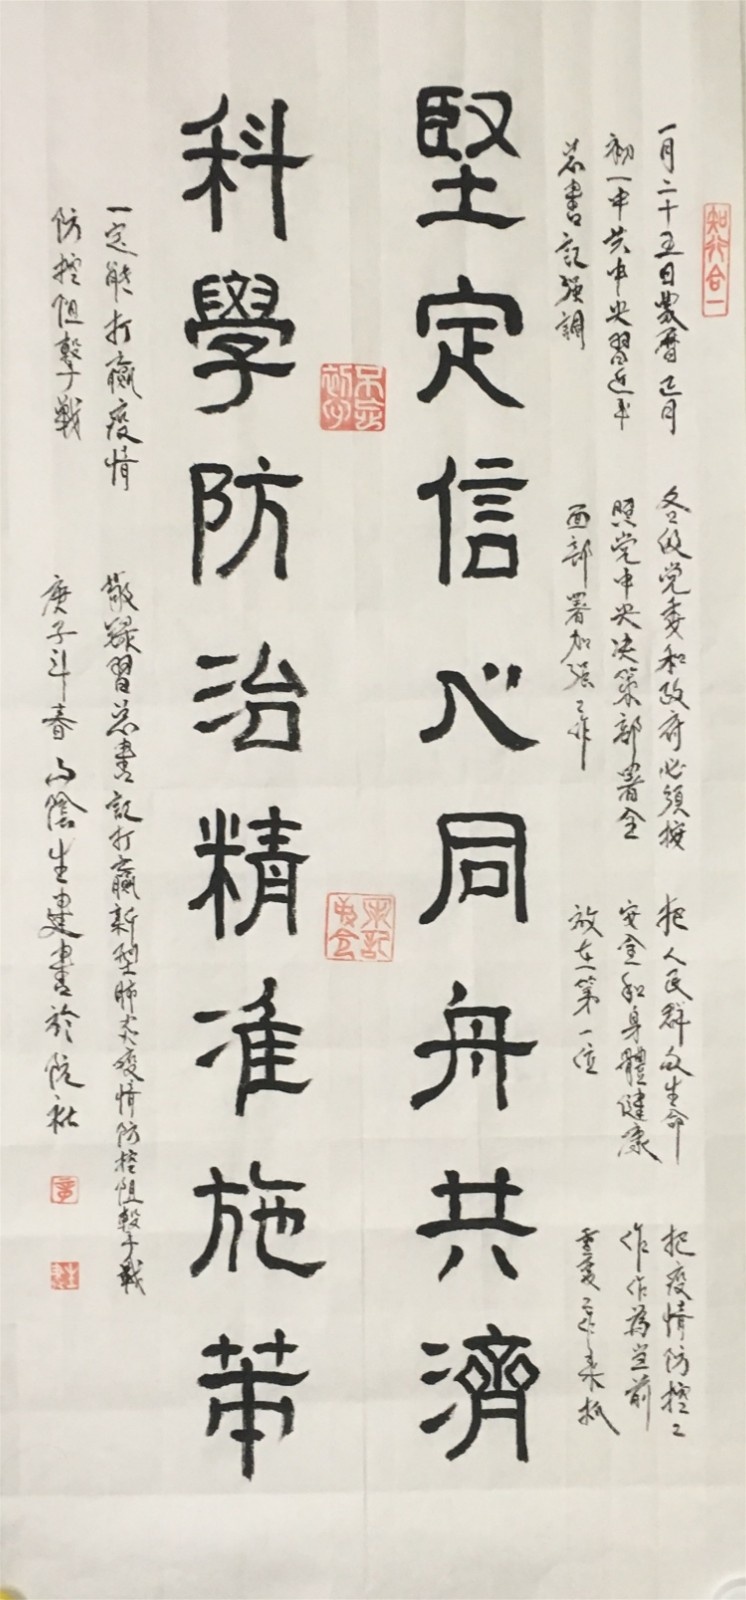 知行合一
一月二十五日農曆正月
初一中共中央習近平
总書記强調
各级党委和政府必须按
照党中央决策部署全
面部署加强工作
把人民群众生命
安全和身體健康
放在第一位
把疫情防控工
作作為当前
重要工作来抓
堅定信心同舟共濟
不忘初心
牢記使命
科學防治精准施策
一定能打贏疫情
防控阻擊战
敬録習总書記打贏新型肺炎疫情防控阻擊战
庚子年春山陰生建書於阮社
章